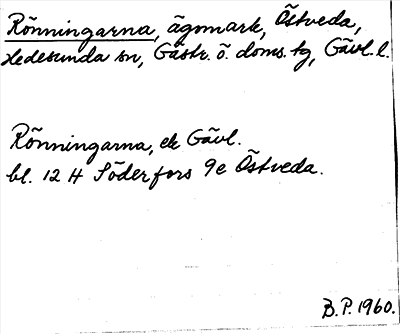 Rönningarna, ägomark, Östveda,
Hedesunda sn, Gästr. ö. doms. tg, Gävl. l.
Rönningarna, ek Gävl.
bl. 12 H Söderfors 9e Östveda.
B.P. 1960.